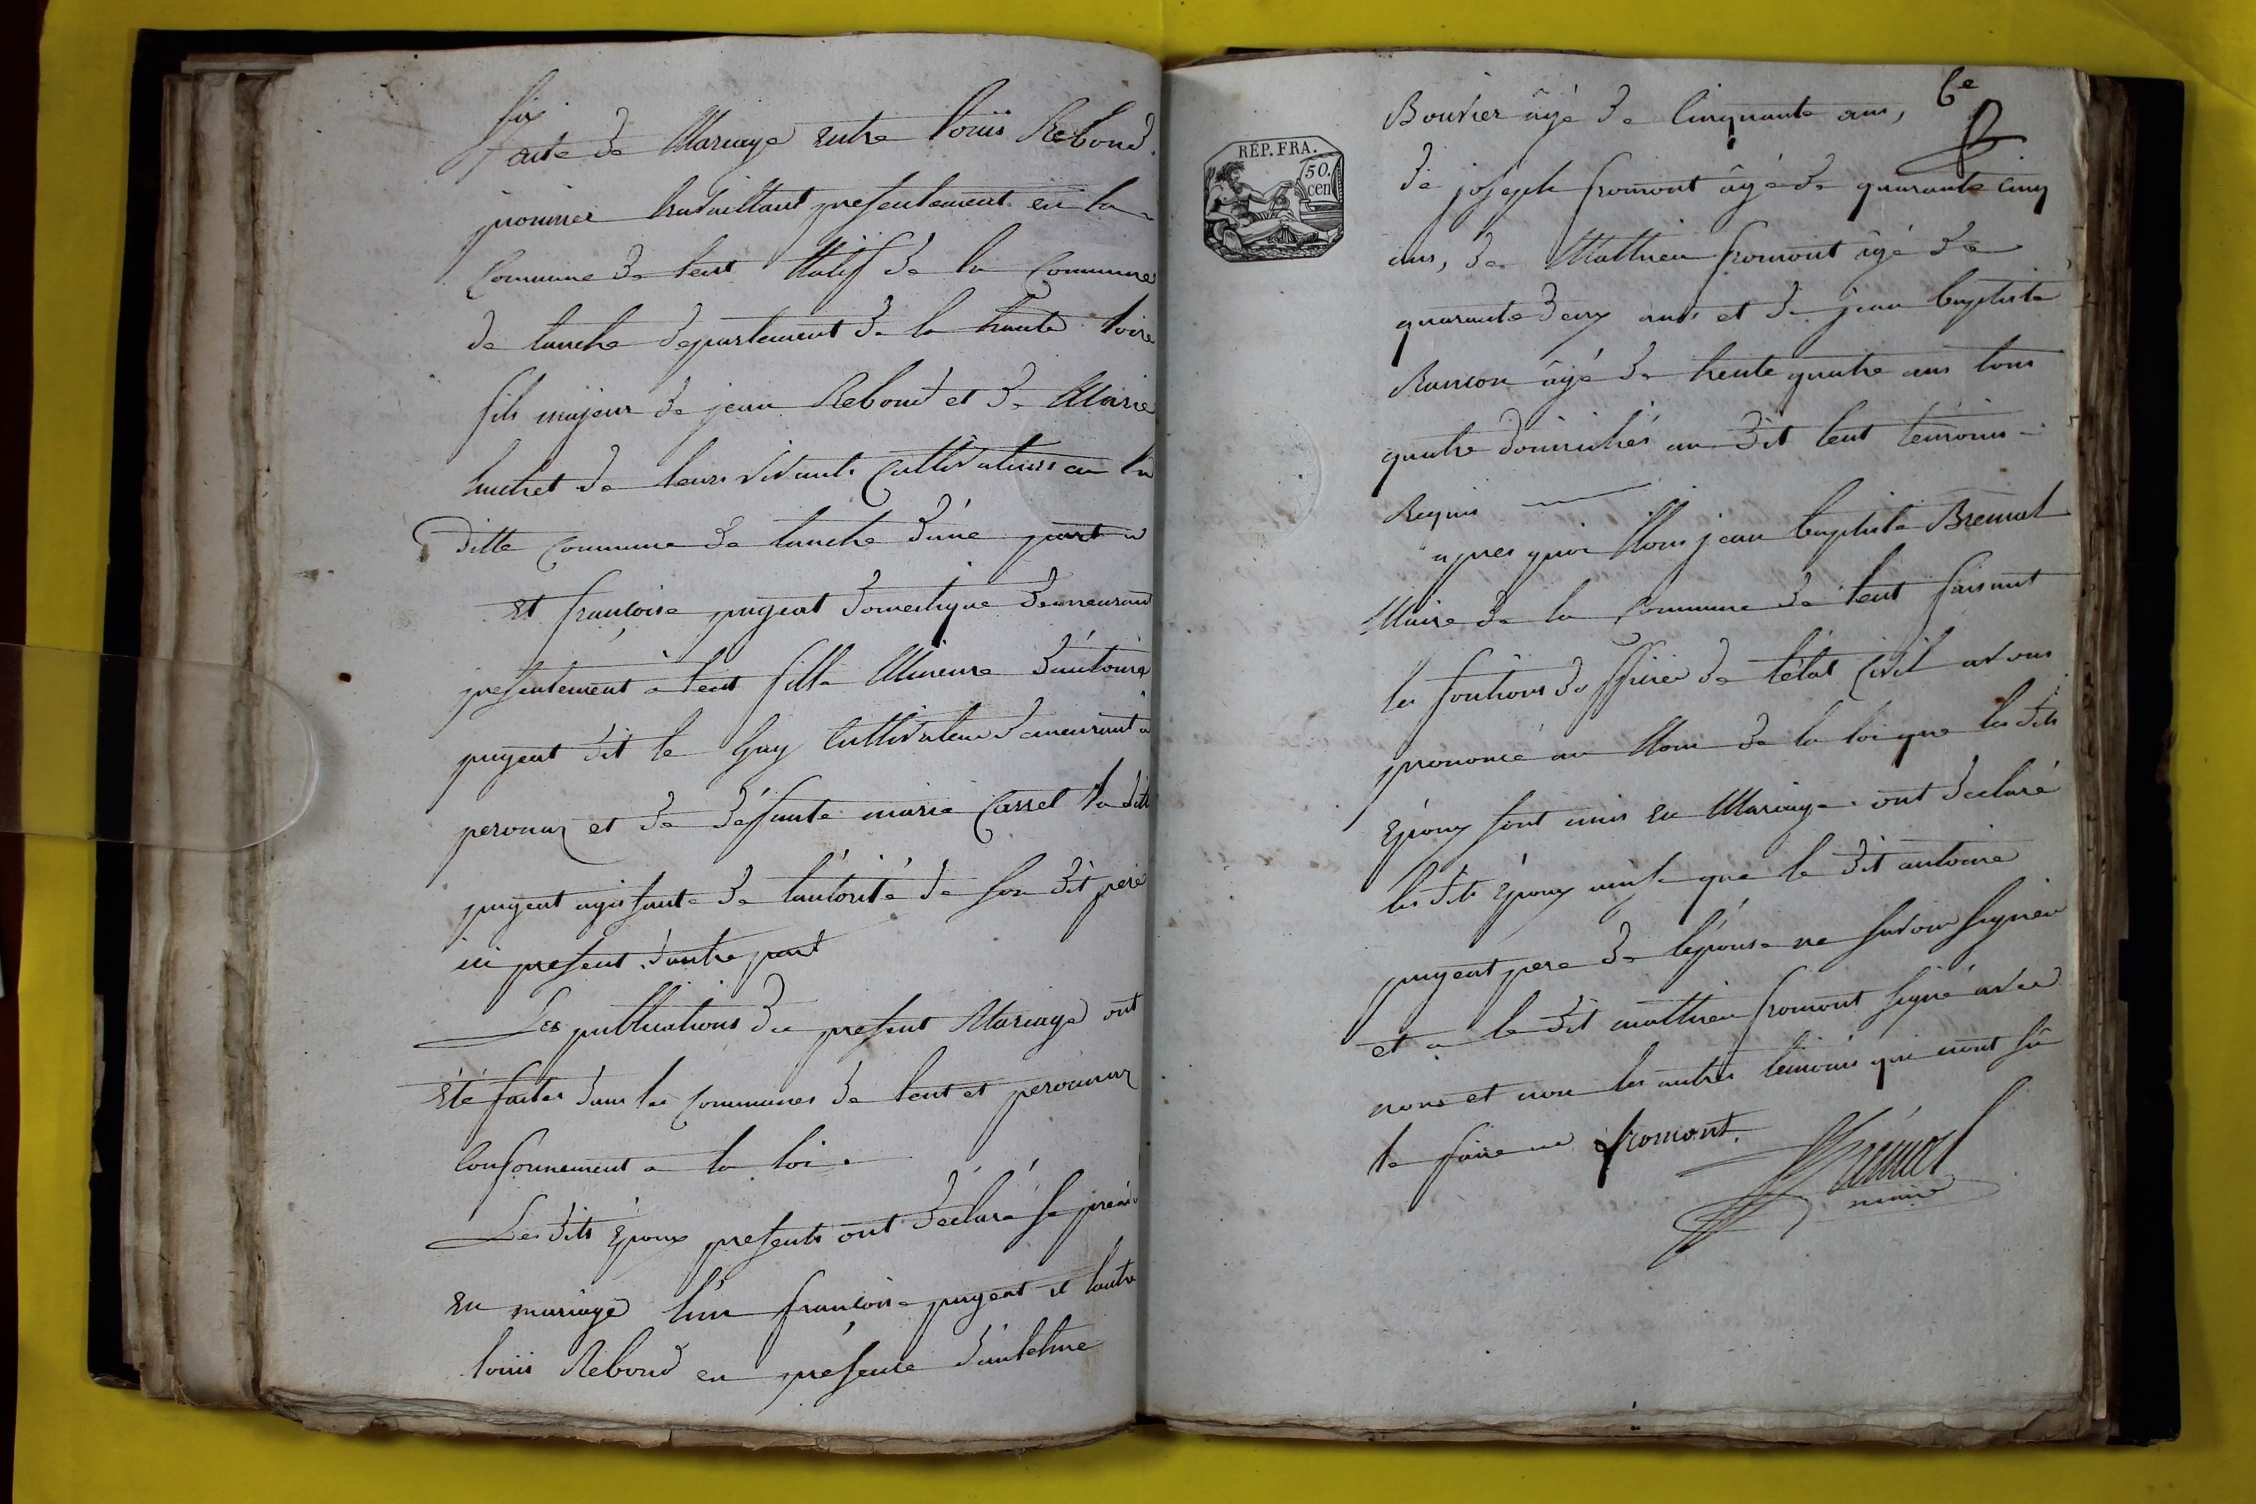 six
acte de Mariage entre louis Rebond
travaillant presentement en la
Commune de lent Natif de la Commune
de tanche departement de la haute loire
fils majeur de jean Rebond et de Marie
huchet de leurs vivants Cultivateurs en la
ditte Commune de tanche d'une part
Et françoise pugeat domestique demeurant
presentement à lent fille Mineure d'antoine
pugeat dit le Guy Cultivateur demeurant à
peronnaz et de défunte marie Carrel la dite
pugeat agissante de l'autorité de son dit pere
ici present d'autre part
Les publications du present Mariage ont
été faites dans les Communes de lent et peronnaz
Conformement a la loi
Les dits Epoux presents ont déclaré se prendre
en mariage l'un françoise pugeat et lautre
louis Rebond en présence d'antelme
Bouvier âgé de Cinquante ans,
6e
de joseph fromont âgé de quarante cinq
ans, de Mathieu fromont âgé de
quarante deux ans et de jean baptiste
Rancon âgé de trente quatre ans tous
quatre domiciliés au dit lent témoins
Requis
apres quoi Nous jean baptiste Bremal
Maire de la Commune de lent faisant
les fontions d'officier de l'état Civil avons
prononcé au Nom de la loi que les dits
Epoux sont unis en Mariage ont declaré
les dits Epoux ainsi que le dit antoine
pugeat pere de l'épouse ne savoir signer
et a le dit mathieu fromont signé avec
nous et non les autres témoins qui n'ont su
le faire
fromont.
Bremal
maire
RÉP. FRA.
50.
cen